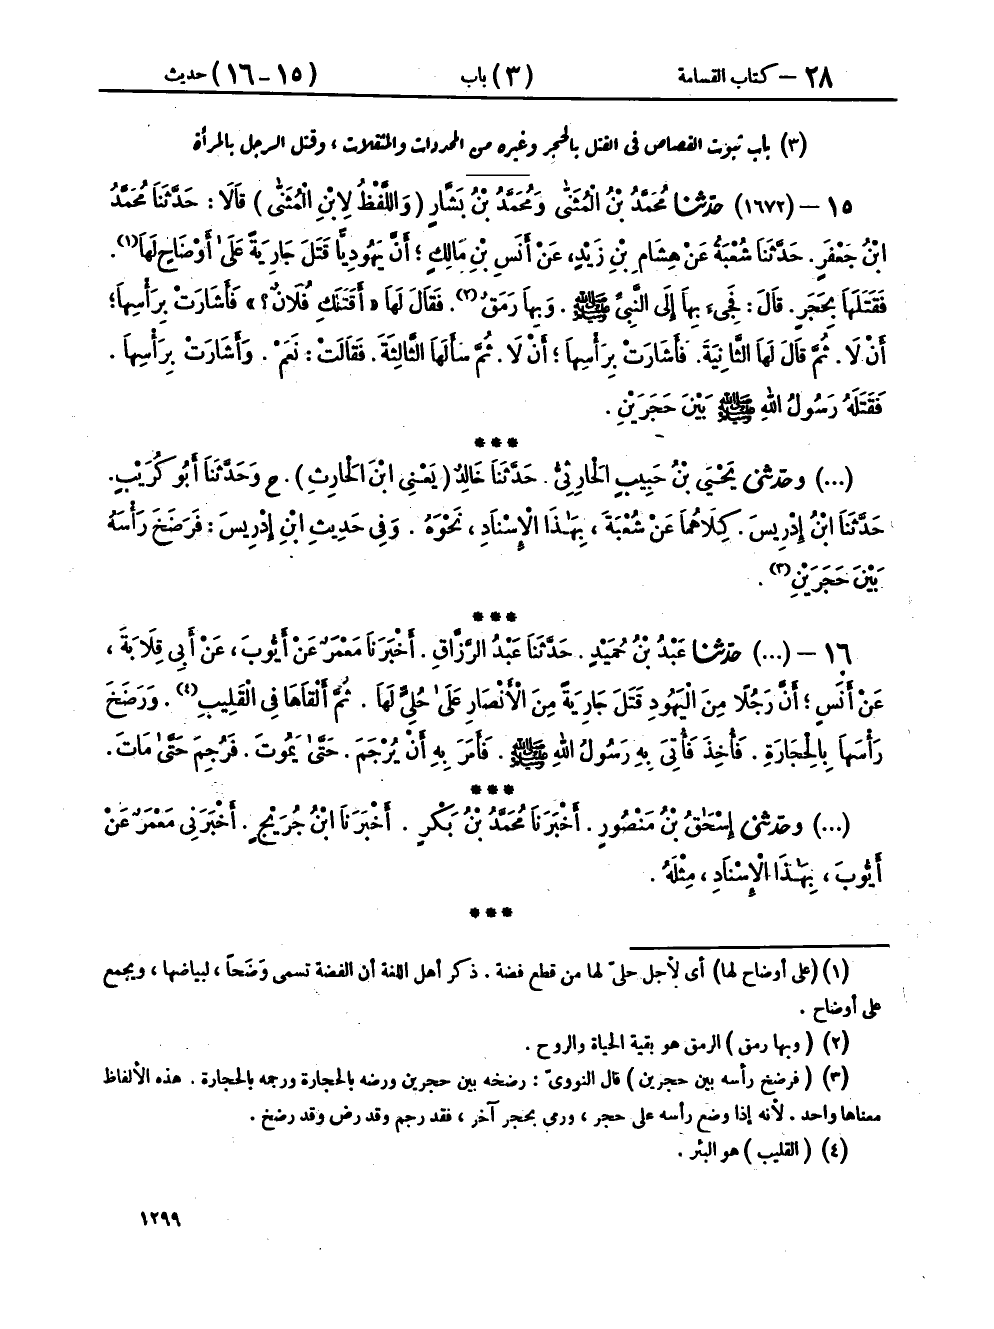 ٢٨ – كتاب القسامة (٣) باب (١٥ – ١٦) حديث
(٣) باب ثبوت القصاص فى القتل بالحجر وغيره من المحددات والمثقلات ، وقتل الرجل بالمرأة
١٥ – (١٦٧٢) حدّثنا مُحَمَّدُ بْنُ الْمُثَنَّى وَمُحَمَّدُ بْنُ بَشَّارٍ (وَاللَّفْظُ لِابْنِ الْمُثَنَّى) قَالَا : حَدَّثَنَا مُحَمَّدُ
ابْنُ جَعْفَرٍ . حَدَّثَنَا شُعْبَةُ عَنْ هِشَامِ بْنِ زَيْدٍ، عَنْ أَنَسِ بْنِ مَالِكٍ ؛ أَنَّ يَهُودِيًّا قَتَلَ جَارِيَةً عَلَىٰ أَوْضَاحٍ لَهَا(١) .
فَقَتَلَهَا بِحَجَرٍ . قَالَ : فَجِىءَ بِهَا إِلَى النَّبِىِّ ﷺ . وَبِهَا رَمَقٌ(٢). فَقَالَ لَهَا « أَقَتَلَكِ فُلَانٌ ؟ » فَأَشَارَتْ بِرَأْسِهَا ؛
أَنْ لَا . ثُمَّ قَالَ لَهَا الثَّانِيَةَ. فَأَشَارَتْ بِرَأْسِهَا ؛ أَنْ لَا . ثُمَّ سَأَلَهَا الثَّالِثَةَ . فَقَالَتْ : نَعَمْ . وَأَشَارَتْ بِرَأْسِهَا .
فَقَتَلَهُ رَسُولُ اللهِ ﷺ بَيْنَ حَجَرَيْنِ .
***
(...) وحدّثنى يَحْيَى بْنُ حَبِيبٍ الْحَارِثِىُّ . حَدَّثَنَا خَالِدٌ ( يَعْنِى ابْنَ الْحَارِثِ ) . ح وَحَدَّثَنَا أَبُو كُرَيْبٍ .
حَدَّثَنَا ابْنُ إِدْرِيسَ . كِلَاهُمَا عَنْ شُعْبَةَ ، بِهَٰذَا الْإِسْنَادِ ، نَحْوَهُ . وَفِى حَدِيثِ ابْنِ إِدْرِيسَ : فَرَضَخَ رَأْسَهُ
بَيْنَ حَجَرَيْنِ(٣) .
***
١٦ – (...) حدّثنا عَبْدُ بْنُ حُمَيْدٍ . حَدَّثَنَا عَبْدُ الرَّزَّاقِ . أَخْبَرَنَا مَعْمَرٌ عَنْ أَيُّوبَ ، عَنْ أَبِى قِلَابَةَ ،
عَنْ أَنَسٍ ؛ أَنَّ رَجُلًا مِنَ الْيَهُودِ قَتَلَ جَارِيَةً مِنَ الْأَنْصَارِ عَلَىٰ حُلِىٍّ لَهَا . ثُمَّ أَلْقَاهَا فِى الْقَلِيبِ(٤) . وَرَضَخَ
رَأْسَهَا بِالْحِجَارَةِ . فَأُخِذَ فَأُتِىَ بِهِ رَسُولُ اللهِ ﷺ . فَأَمَرَ بِهِ أَنْ يُرْجَمَ . حَتَّىٰ يَمُوتَ . فَرُجِمَ حَتَّىٰ مَاتَ .
***
(...) وحدّثنى إِسْحَٰقُ بْنُ مَنْصُورٍ . أَخْبَرَنَا مُحَمَّدُ بْنُ بَكْرٍ . أَخْبَرَنَا ابْنُ جُرَيْجٍ . أَخْبَرَنِى مَعْمَرٌ عَنْ
أَيُّوبَ ، بِهَٰذَا الْإِسْنَادِ ، مِثْلَهُ .
***
(١) (على أوضاح لها) أى لأجل حلىّ لها من قطع فضة . ذكر أهل اللغة أن الفضة تسمى وَضَحاً ، لبياضها ، ويجمع
على أوضاح .
(٢) ( وبها رمق ) الرمق هو بقية الحياة والروح .
(٣) ( فرضخ رأسه بين حجرين ) قال النووىّ : رضخه بين حجرين ورضه بالحجارة ورجمه بالحجارة . هذه الألفاظ
معناها واحد . لأنه إذا وضع رأسه على حجر ، ورمى بحجر آخر ، فقد رجم وقد رض وقد رضخ .
(٤) ( القليب ) هو البئر .
١٢٩٩